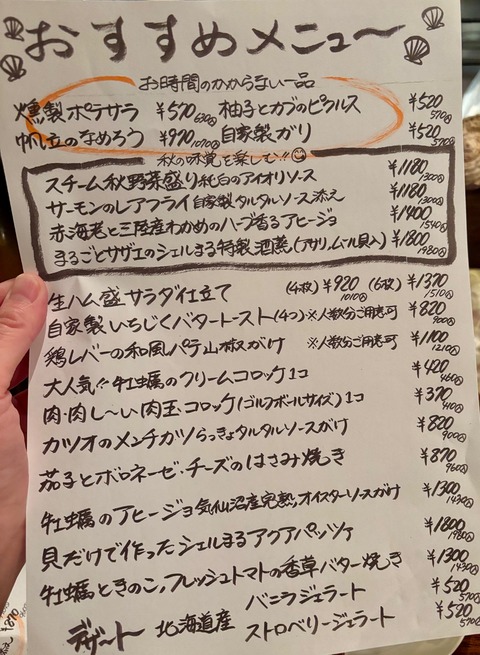 おすすめメニュー
お時間のかからない一品
燻製ポテサラ ¥570 柚子とカブのピクルス ¥520 570
帆立のなめろう ¥970 1070 自家製ガリ ¥520 570
秋の味覚を楽しむ!!
スチーム秋野菜盛り 純白のアイオリソース ¥1180 1300
サーモンのレアフライ自家製タルタルソース添え ¥1180 1300
赤海老と三陸産わかめのハーブ香るアヒージョ ¥1400 1540
まるごとサザエのシェルまる特製酒蒸(アサリ、ムール貝入) ¥1800 1980
生ハム盛サラダ仕立て (4枚) ¥920 1010 (6枚) ¥1370 1510
自家製いちじくバタートースト(4つ)※人数分ご用意可 ¥820 900
鶏レバーの和風パテ山椒がけ ※人数分ご用意可 ¥1100 1210
大人気!!牡蠣のクリームコロッケ1コ ¥420 460
肉・肉し〜い肉玉コロッケ(ゴルフボールサイズ)1コ ¥370 410
カツオのメンチカツらっきょタルタルソースがけ ¥820 900
茄子とボロネーゼ・チーズのはさみ焼き ¥870 960
牡蠣のアヒージョ気仙沼産完熟オイスターソースがけ ¥1300 1430
貝だけで作ったシェルまるアクアパッツァ ¥1800 1980
牡蠣ときのこ、フレッシュトマトの香草バター焼き ¥1300 1430
デザート 北海道産 バニラジェラート ¥520 570
ストロベリージェラート ¥520 570